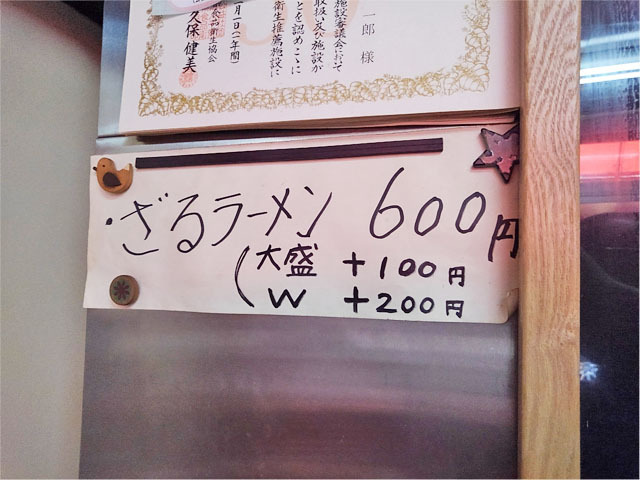 一郎 様
施設審議会において
取扱い及び施設が
ことを認めここに
衛生推薦施設に
月1日(二年間)
食品衛生協会
久保健美
・ざるラーメン 600円
(大盛 +100円
W +200円